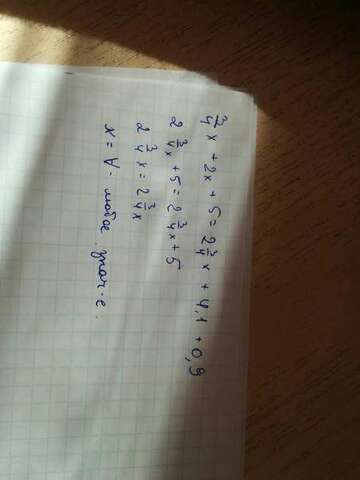 3/4 x + 2x + 5 = 2 3/4 x + 4,1 + 0,9
2 3/4 x + 5 = 2 3/4 x + 5
2 3/4 x = 2 3/4 x
x = A - любое знач-е.